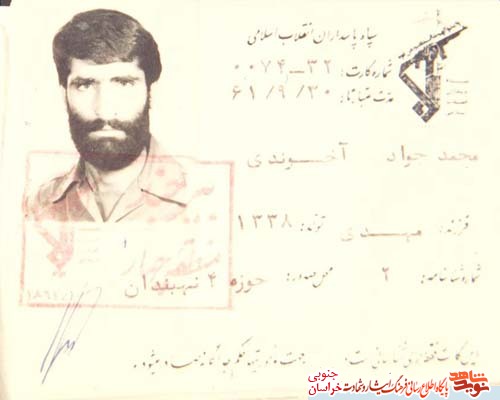 سپاه پاسداران انقلاب اسلامی
شماره کارت: ۳۲-۰۰۷۴
مدت اعتبار تا: ۶۱/۹/۳۰
محمد جواد آخوندی
فرزند: مهدی تولد: ۱۳۳۸
شماره شناسنامه: ۲ محل صدور: حوزه ۴ نهبندان
این کارت فقط
نوید شاهد
پایگاه اطلاع رسانی فرهنگ ایثار و شهادت
خراسان جنوبی